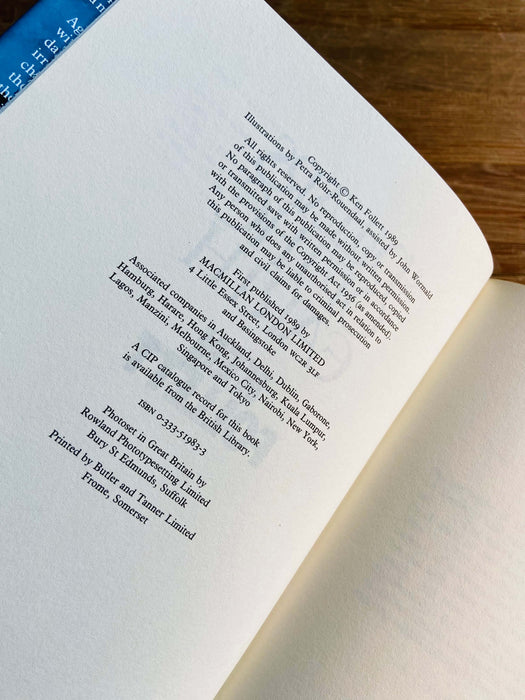 Copyright © Ken Follett 1989
Illustrations by Petra Röhr-Rouendaal, assisted by John Wormald
All rights reserved. No reproduction, copy or transmission
of this publication may be made without written permission.
No paragraph of this publication may be reproduced, copied
or transmitted save with written permission or in accordance
with the provisions of the Copyright Act 1956 (as amended).
Any person who does any unauthorised act in relation to
this publication may be liable to criminal prosecution
and civil claims for damages.
First published 1989 by
MACMILLAN LONDON LIMITED
4 Little Essex Street, London WC2R 3LF
and Basingstoke
Associated companies in Auckland, Delhi, Dublin, Gaborone,
Hamburg, Harare, Hong Kong, Johannesburg, Kuala Lumpur,
Lagos, Manzini, Melbourne, Mexico City, Nairobi, New York,
Singapore and Tokyo
A CIP catalogue record for this book
is available from the British Library.
ISBN 0-333-51983-3
Photoset in Great Britain by
Rowland Phototypesetting Limited
Bury St Edmunds, Suffolk
Printed by Butler and Tanner Limited
Frome, Somerset